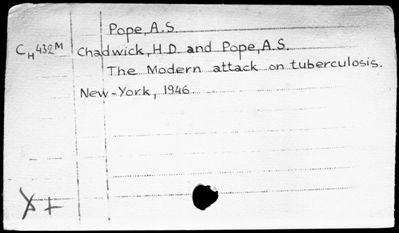 Pope, A.S.
CH 432M Chadwick, H.D. and Pope, A.S.
The Modern attack on tuberculosis.
New-York, 1946.